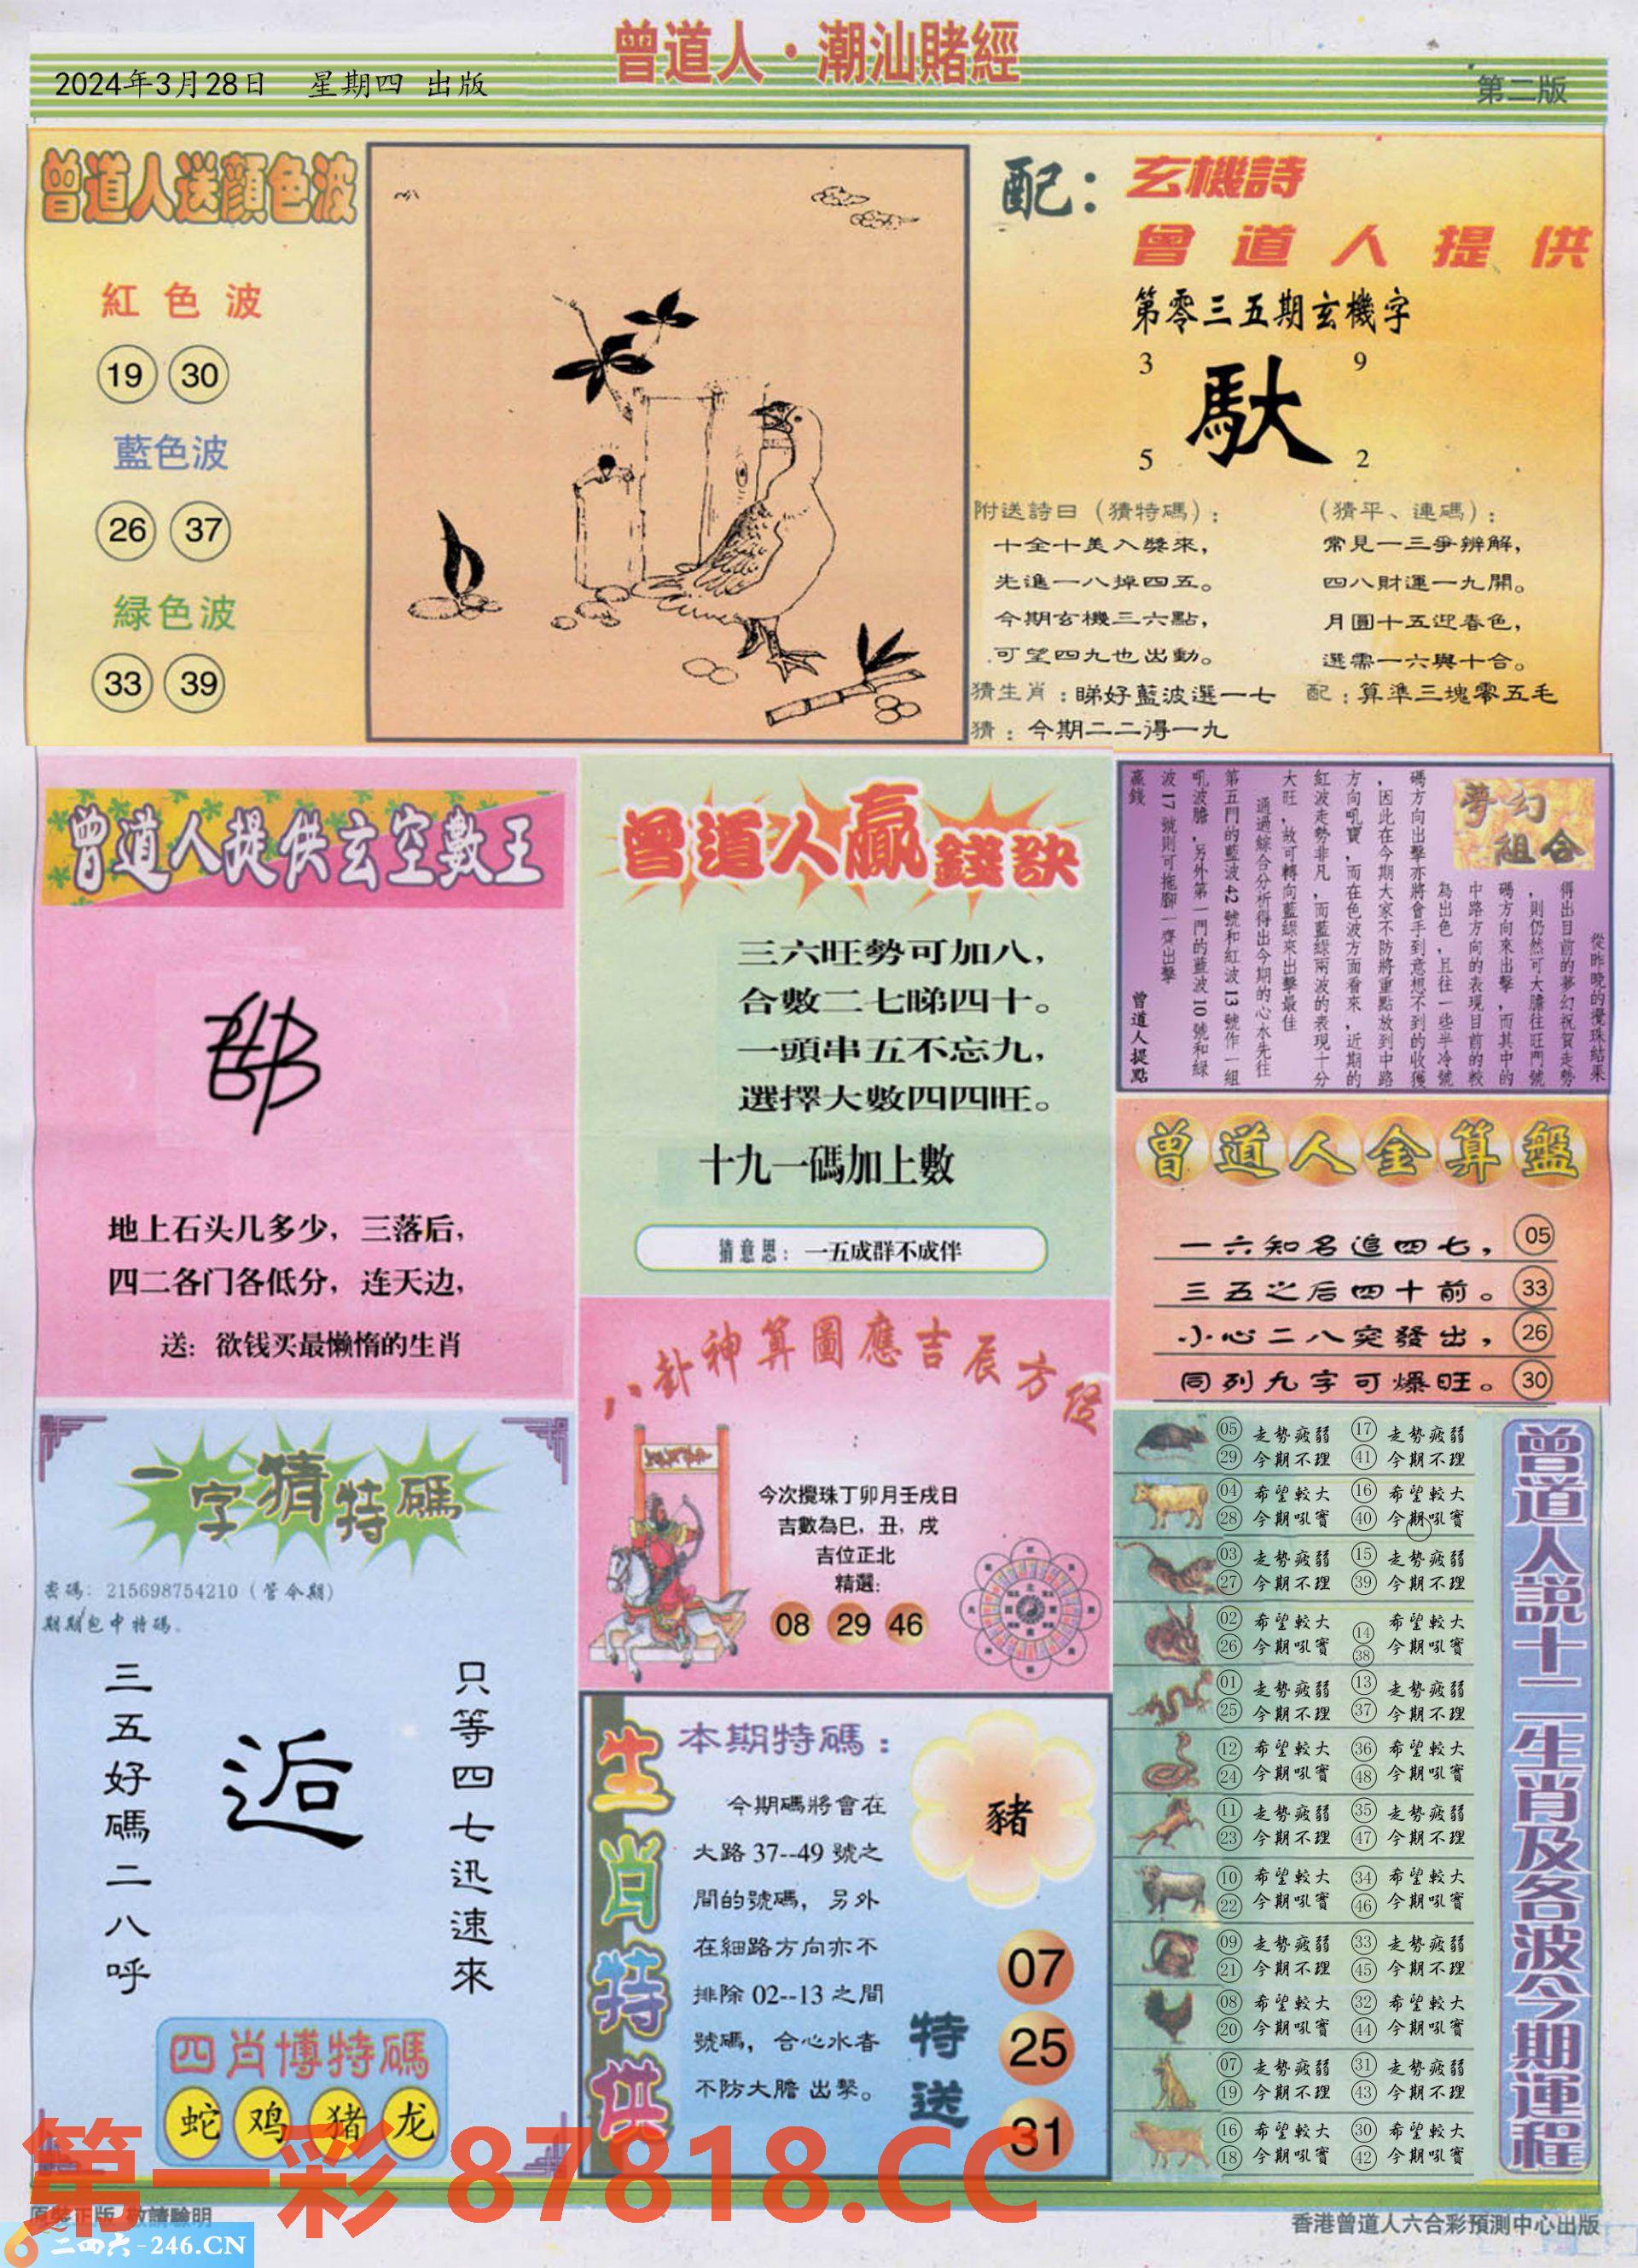 曾道人·潮汕賭經
2024年3月28日 星期四 出版
第二版
曾道人送顏色波
紅色波
19 30
藍色波
26 37
緑色波
33 39
配：玄機詩
曾道人提供
第零三五期玄機字
3 9
馱
5 2
附送詩曰（猜特碼）：
十全十美入獎來，
先進一八掉四五。
今期玄機三六點，
可望四九也出動。
（猜平、連碼）：
常見一三爭辨解，
四八財運一九開。
月圓十五迎春色，
選需一六與十合。
猜生肖：睇好藍波選一七
配：算準三塊零五毛
猜：今期二二得一九
曾道人提供玄空數王
地上石头几多少，三落后，
四二各门各低分，连天边，
送：欲钱买最懒惰的生肖
曾道人贏錢訣
三六旺勢可加八，
合數二七睇四十。
一頭串五不忘九，
選擇大數四四旺。
十九一碼加上數
猜意思：一五成群不成伴
夢幻組合
從昨晚的攪珠結果
得出目前的夢幻祝賀走勢
，則仍然可大膽往旺門號
碼方向來出擊，而其中的
中路方向的表現目前的較
為出色，且往一些半冷號
碼方向出擊亦將會手到意想不到的收獲
，因此在今期大家不防將重點放到中路
方向吼寶，而在色波方面看來，近期的
紅波走勢非凡，而藍綠兩波的表現十分
大旺，故可轉向藍綠來出擊最佳
通過綜合分析得出今期的心水先往
第五門的藍波42號和紅波13號作一組
吼波膽，另外第一門的藍波10號和綠
波17號則可拖腳一齊出擊
贏錢
曾道人提點
曾道人金算盤
一六知名追四七， 05
三五之后四十前。 33
小心二八突發出， 26
同列九字可爆旺。 30
八卦神算圖應吉辰方位
今次攪珠丁卯月壬戌日
吉數為巳，丑，戌
吉位正北
精選：
08 29 46
一字猜特碼
密碼：215698754210（管今期）
期期包中特碼。
三五好碼二八呼
逅
只等四七迅速來
四肖博特碼
蛇 鸡 猪 龙
生肖特供
本期特碼：
今期碼將會在
大路37--49號之
間的號碼，另外
在細路方向亦不
排除02--13之間
號碼，合心水者
不防大膽出擊。
豬
特送
07
25
31
曾道人說十二生肖及各波今期運程
05 走勢疲弱 17 走勢疲弱
29 今期不理 41 今期不理
04 希望較大 16 希望較大
28 今期吼實 40 今期吼實
03 走勢疲弱 15 走勢疲弱
27 今期不理 39 今期不理
02 希望較大 14 希望較大
26 今期吼實 38 今期吼實
01 走勢疲弱 13 走勢疲弱
25 今期不理 37 今期不理
12 希望較大 36 希望較大
24 今期吼實 48 今期吼實
11 走勢疲弱 35 走勢疲弱
23 今期不理 47 今期不理
10 希望較大 34 希望較大
22 今期吼實 46 今期吼實
09 走勢疲弱 33 走勢疲弱
21 今期不理 45 今期不理
08 希望較大 32 希望較大
20 今期吼實 44 今期吼實
07 走勢疲弱 31 走勢疲弱
19 今期不理 43 今期不理
16 希望較大 30 希望較大
18 今期吼實 42 今期吼實
第一彩 87818.CC
原裝正版 敬請驗明
二四六-246.CN
香港曾道人六合彩預測中心出版